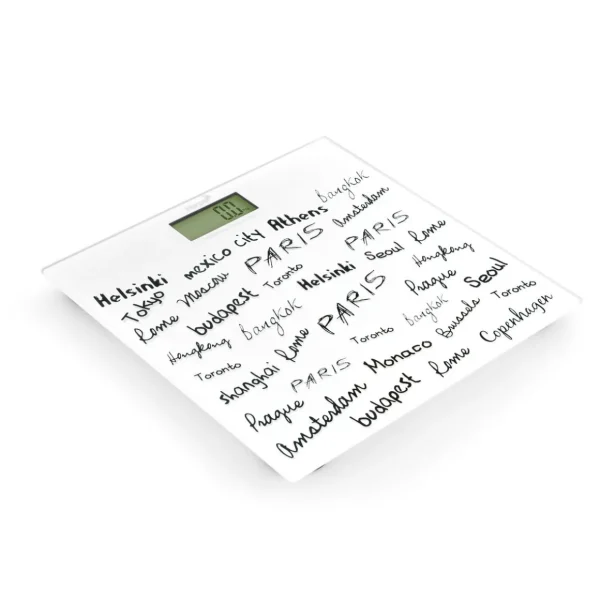 0.0
Bangkok
Helsinki mexico city Athens Amsterdam
Tokyo Moscow PARIS PARIS Rome
Rome budapest Toronto Helsinki Seoul Hongkong
Hongkong Bangkok PARIS Prague Seoul
Toronto shanghai Rome Toronto Bangkok Brussels Toronto
Prague PARIS Monaco Rome Copenhagen
Amsterdam budapest